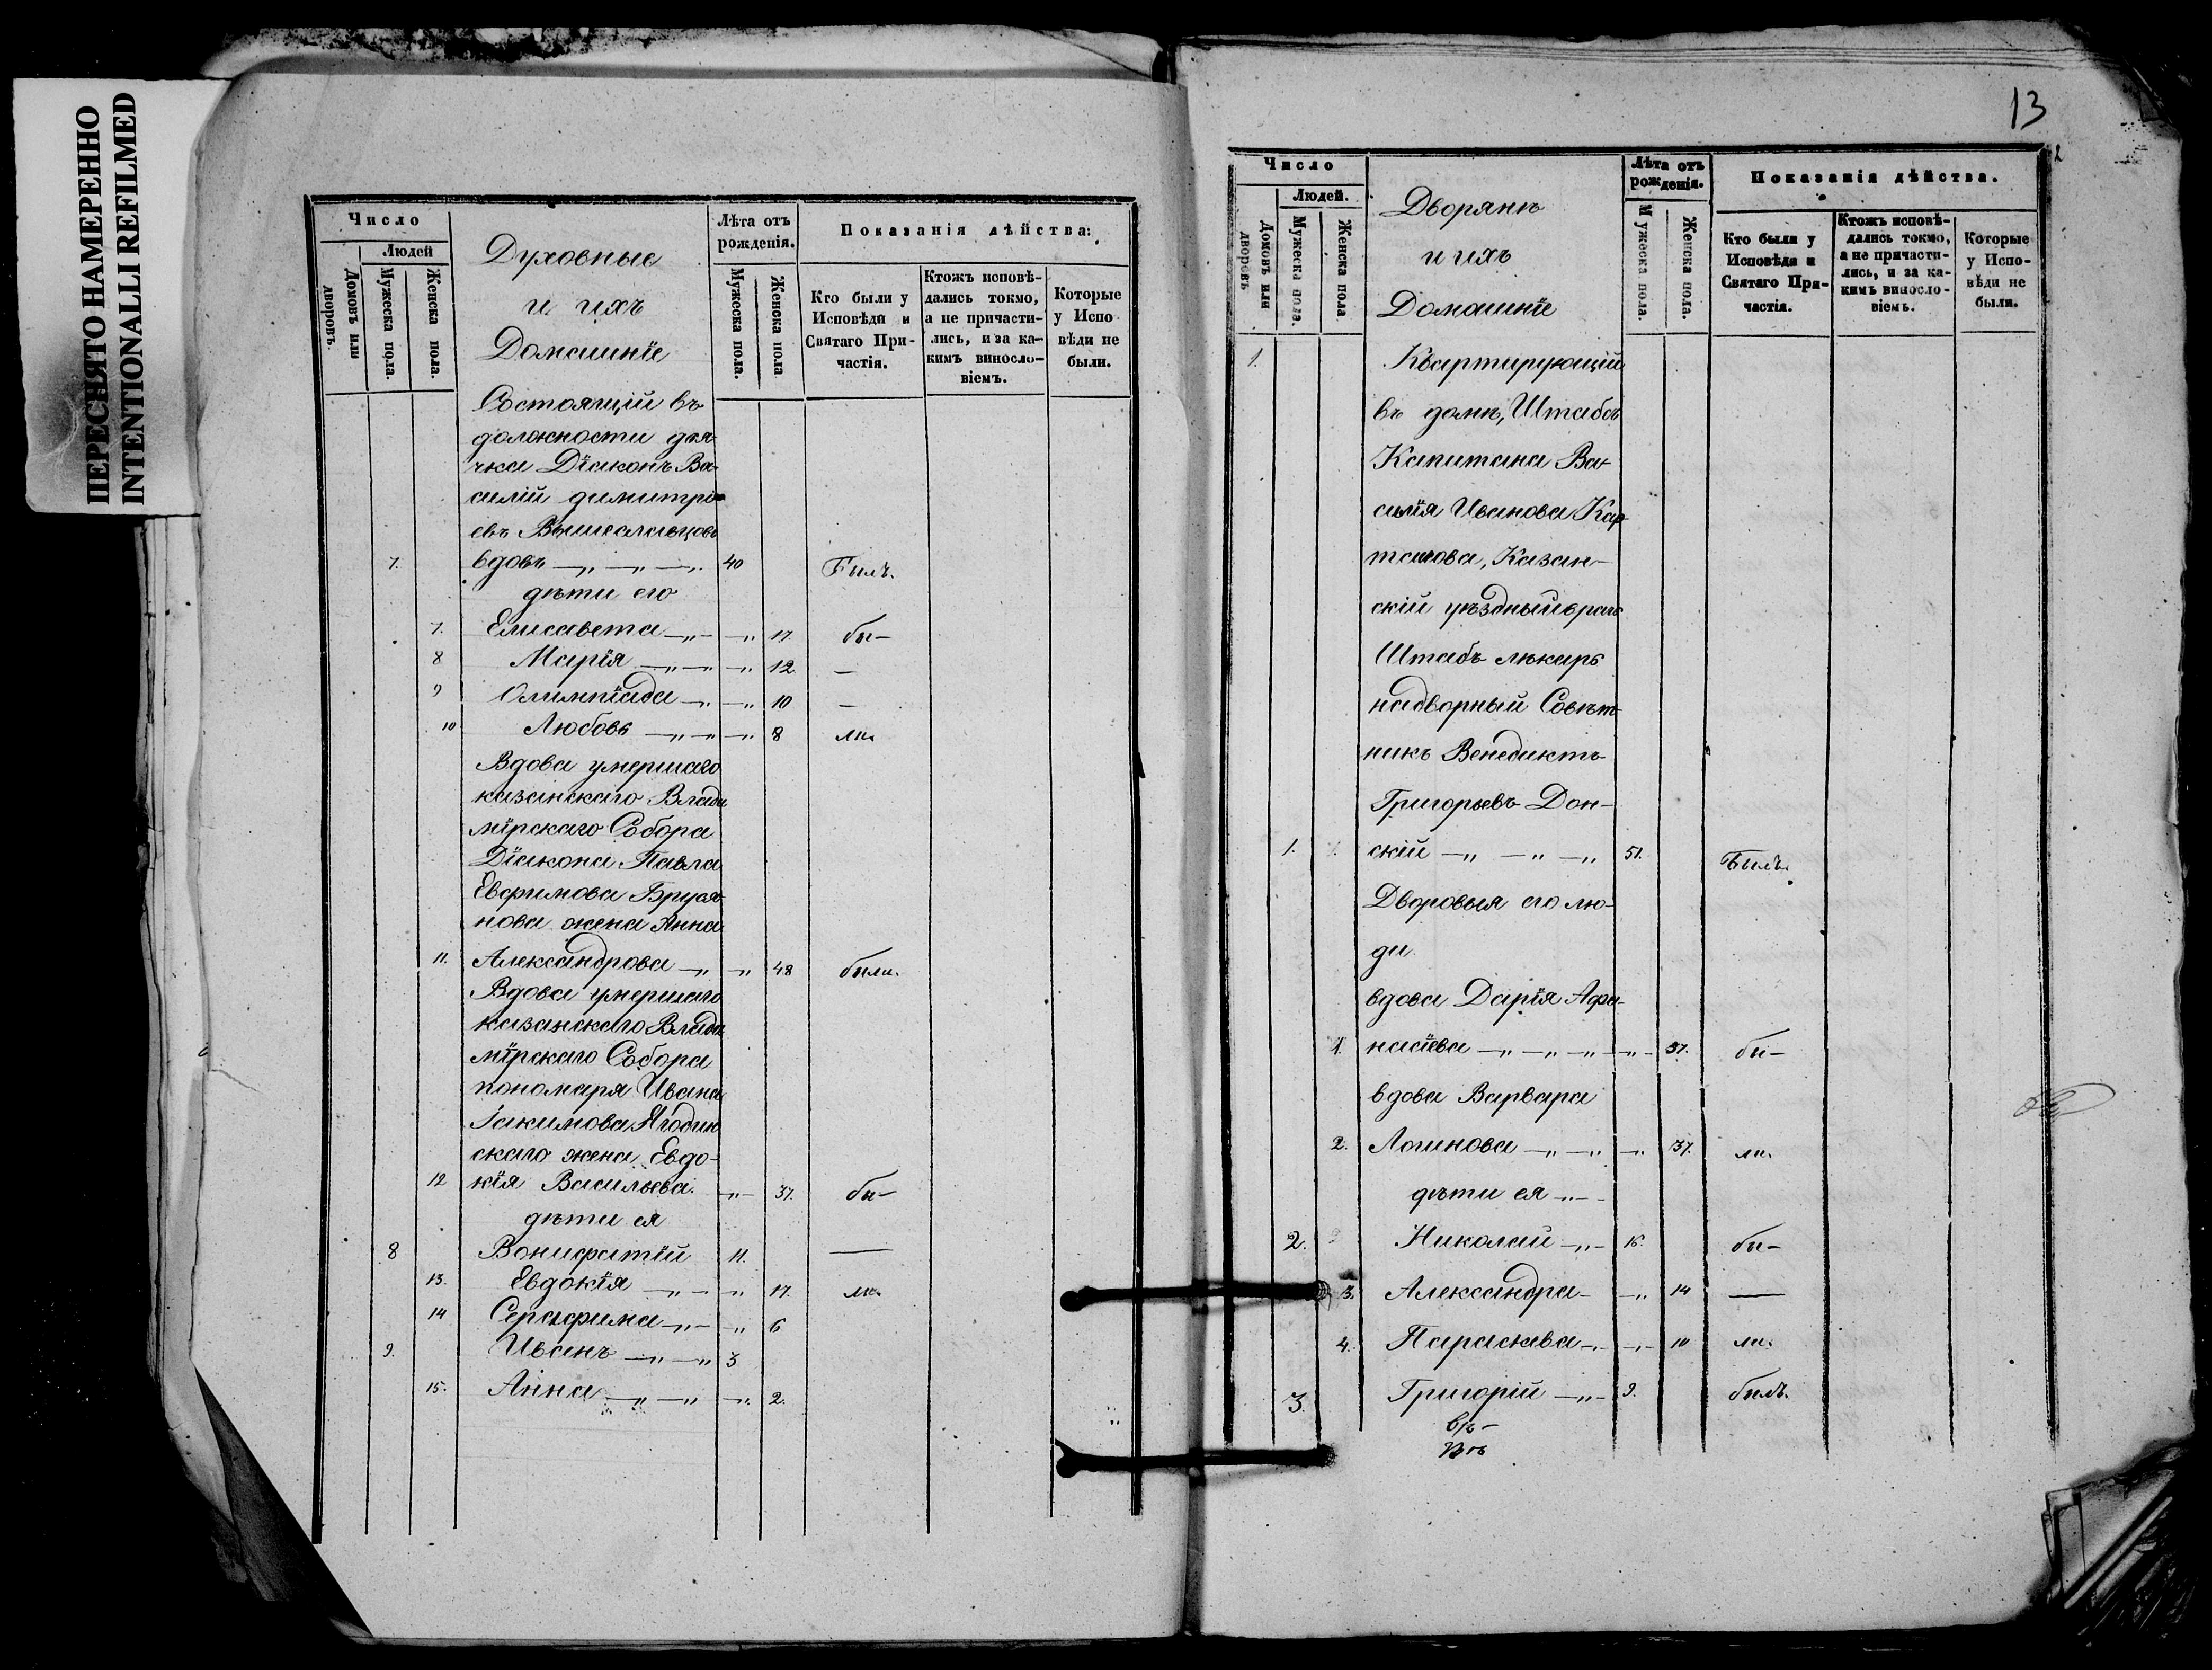 ПЕРЕСНЯТО НАМЕРЕННО
INTENTIONALLI REFILMED
Число
Людей
Домовъ или дворовъ.
Мужеска пола.
Женска пола.
Духовные
и ихъ
Домашніе
Лѣта отъ рожденія.
Мужеска пола.
Женска пола
Показанія дѣйства:
Кто были у Исповѣди и Святаго При-частія.
Ктожъ исповѣ-дались токмо, а не причасти-лись, и за ка-кимъ винословіемъ.
Которые у Испо вѣди не были.
Состоящій въ
должности дья
чка Діаконъ Ва-
силій Димитрі
евъ Вышеславцовъ
7. вдовъ 40 Былъ.
дѣти его
7. Елисавета 17 бы-
8 Марія 12 —
9 Олимпіада 10 —
10 Любовь 8 ли
Вдова умершаго
казанскаго Влади
мірскаго Собора
Діакона Павла
Евфимова Бруся
нова жена Анна
11. Александрова 48 были.
Вдова умершаго
казанскаго Влади
мірскаго Собора
пономаря Ивана
Іакимова Ягодин
скаго жена Евдо-
12 кія Васильева. 37. бы-
дѣти ея
8 Вонифатій 11. —
13. Евдокія 17. ли.
14 Серафима 6
9. Иванъ 3
15. Анна 2.
13
Число
Людей.
Домовъ или дворовъ
Мужеска пола.
Женска пола
Дворянѣ
и ихъ
Домашніе
Лѣта отъ рожденія.
Мужеска пола.
Женска пола.
Показанія дѣйства.
Кто были у Исповѣди и Святаго При-частія.
Ктожъ исповѣ-дались токмо, а не причасти-лись, и за ка-кимъ винословіемъ.
Которые у Испо-вѣди не были.
1. Квартирующій
въ домѣ, Штабсъ
Капитана Ва-
силія Иванова Кар
ташова, Казан-
скій уѣздный врачъ
Штабъ лѣкарь
надворный Совѣт-
никъ Венедиктъ
Григорьевъ Дон-
1. скій 51. Былъ.
Дворовыя его лю-
ди.
вдова Дарія Афа-
1. насіева 37. бы-
вдова Варвара
2. Логинова 37. ли.
дѣти ея
2. Николай 16. бы-
3. Александра 14 —
4. Параскева 10 ли.
3. Григорій 9. былъ.